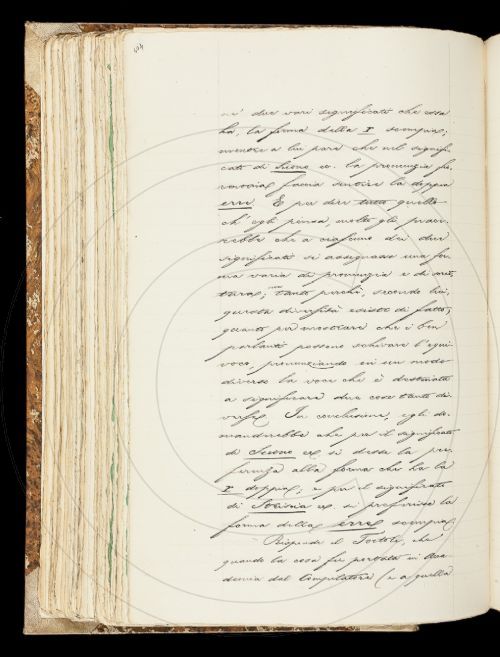 434
nei due vari significati che essa
ha, la forma della r scempia,
mentre a lui pare che nel signifi-
cato di Suono ec. la pronunzia fio-
faccia sentire la doppia
erre. E per dire tutto quello
ch'egli pensa, molto gli piace-
rebbe che a ciascuno dei due
significati si assegnasse una for-
ma varia di pronunzia e di scrit-
tura; non tanto perchè, secondo lui,
questa diversità esiste di fatto,
quanto per mostrare che i ben
parlanti possono schivare l'equi-
voco, pronunziando in un modo
diverso la voce che è destinata
a significare due cose tanto di-
verse. In conclusione, egli do-
manderebbe che per il significato
di Suono ec. si desse la pre-
ferenza alla forma che ha la
r doppia; e per il significato
di ec. si preferisse la
forma della erre scempia.
Risponde il Tortoli, che
quando la cosa fu portata in Acca-
demia dal Compilatore (e a quella